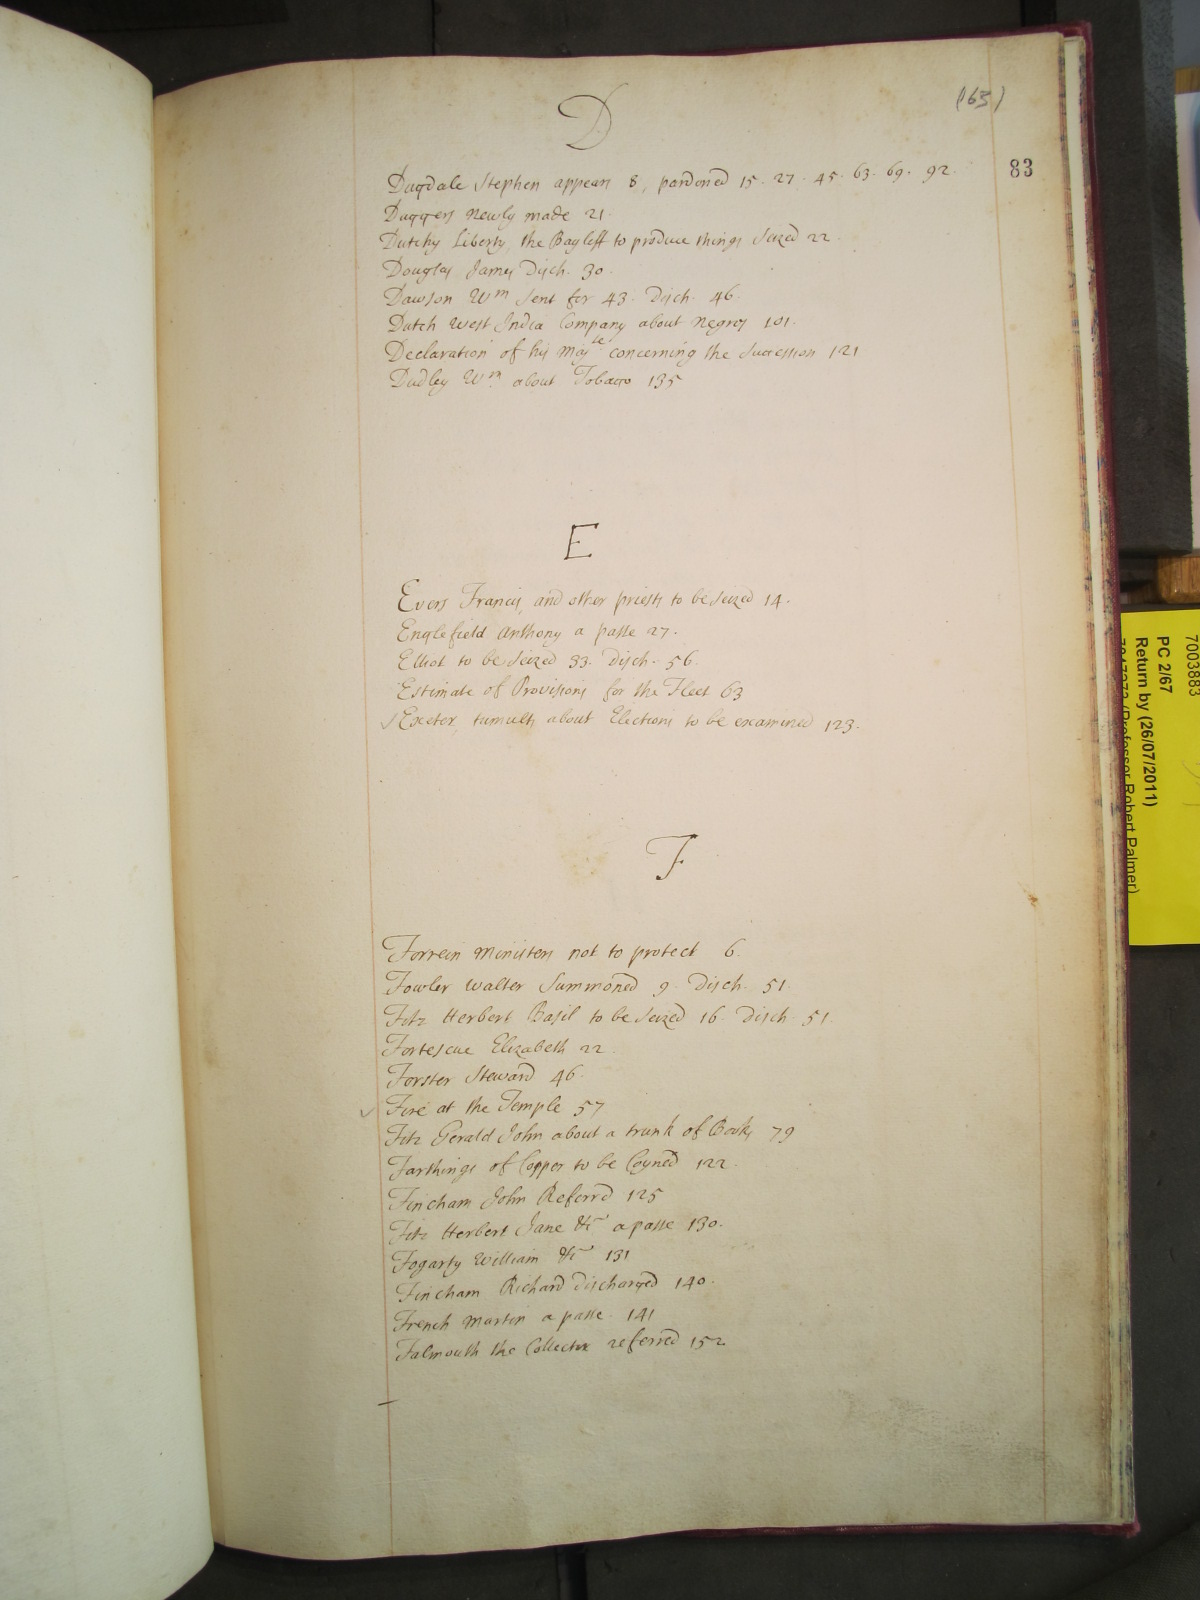 (163)
D
83
Dugdale Stephen appears 8, pardoned 15. 27. 45. 63. 69. 92.
Daggers newly made 21.
Dutchy Liberty, the Bayleff to produce things seized 22.
Douglas James Disch. 30.
Dawson Wm sent for 43. Disch. 46.
Dutch West India Company about Negros 101.
Declaration of his Majtie concerning the Succession 121
Dudley Wm about Tobacco 135
E
Evers Francis, and other priests to be seized 14.
Englefield Anthony a passe 27.
Elliot to be seized 33. Disch. 56.
Estimate of Provisions for the Fleet 63
Exeter, tumults about Elections to be examined 123.
F
Forrein Ministers not to protect 6.
Fowler Walter Summoned 9. Disch. 51.
Fitz Herbert Basil to be seized 16. Disch. 51.
Fortescue Elizabeth 22.
Forster Steward 46.
Fire at the Temple 57
Fitz Gerald John about a trunk of Books 79
Farthings of Copper to be Coyned 122.
Fincham John Referrd 125
Fitz Herbert Jane &c a passe 130.
Fogarty William &c 131
Fincham Richard discharged 140.
French Martin a passe. 141
Falmouth the Collector referred 152
7003883
PC 2/67
Return by (26/07/2011)
(Professor Robert Palmer)